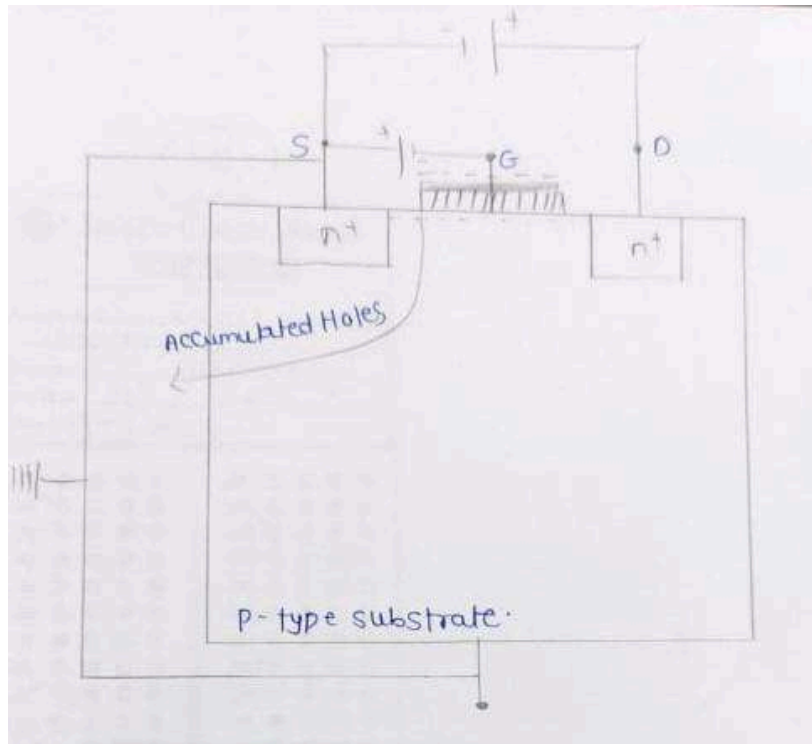 - +
S + - G D
n+ n+
Accumulated Holes
P-type substrate.